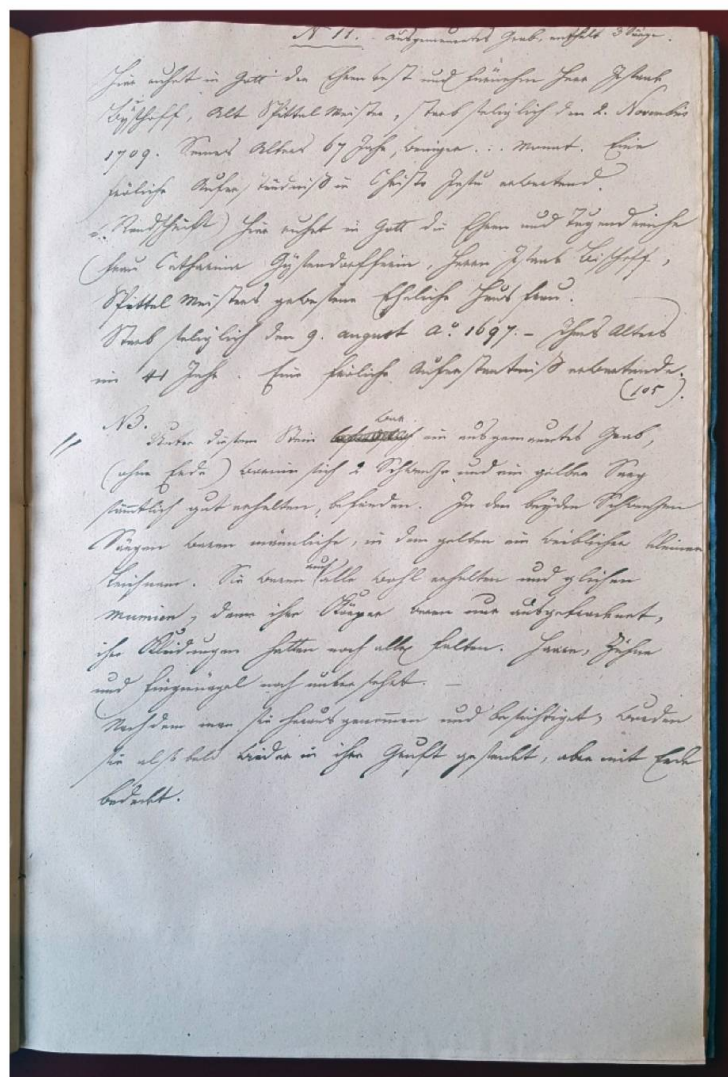 N° 11. - ausgemauertes Grab, enthält 3 Särge.
Hier ruhet in Gott der Ehrenvest und fürnehm Herr Isaac
Byschoff, Alt Spittel Meister, starb seliglich den 2. November
1709. Seines Alters 67 Jahr, weniger . . . Monat. Eine
fröliche Auferständniß in Christo Jesu erwartend.
Randschrift) Hier ruhet in Gott die Ehren und Tugendreiche
Frau Catharina, Herrn Isaac Bischoff,
Spittel Meisters gewesene Eheliche Hausfrau.
Starb seliglich den 9. august A° 1697. - Ihres Alters
im 41 Jahr. Eine fröliche Auferstentniß erwartende.
(105).
NB.
Unter diesem Stein war ein ausgemauertes Grab,
(ohne Erde) worin sich 2 Schwarze und ein gelber Sarg
sämtlich gut erhalten, befanden. In den beyden Schwarzen
Särgen waren männliche, in dem gelben ein weiblicher kleiner
Leichnam. Sie waren auch alle wohl erhalten und glichen
Mumien, denn ihre Körper waren nur ausgetrocknet,
ihre Kleidungen hatten noch alle Falten. Haare, Zähne
und Fingernägel noch unversehrt. -
Nachdem man sie herausgenommen und besichtiget, wurden
sie alsbald wieder in ihre Gruft gesenkt, aber mit Erde
bedeckt.